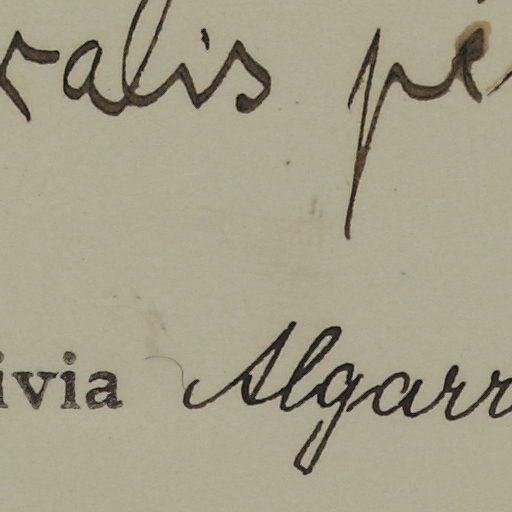 ralis pe
ivia Algarr